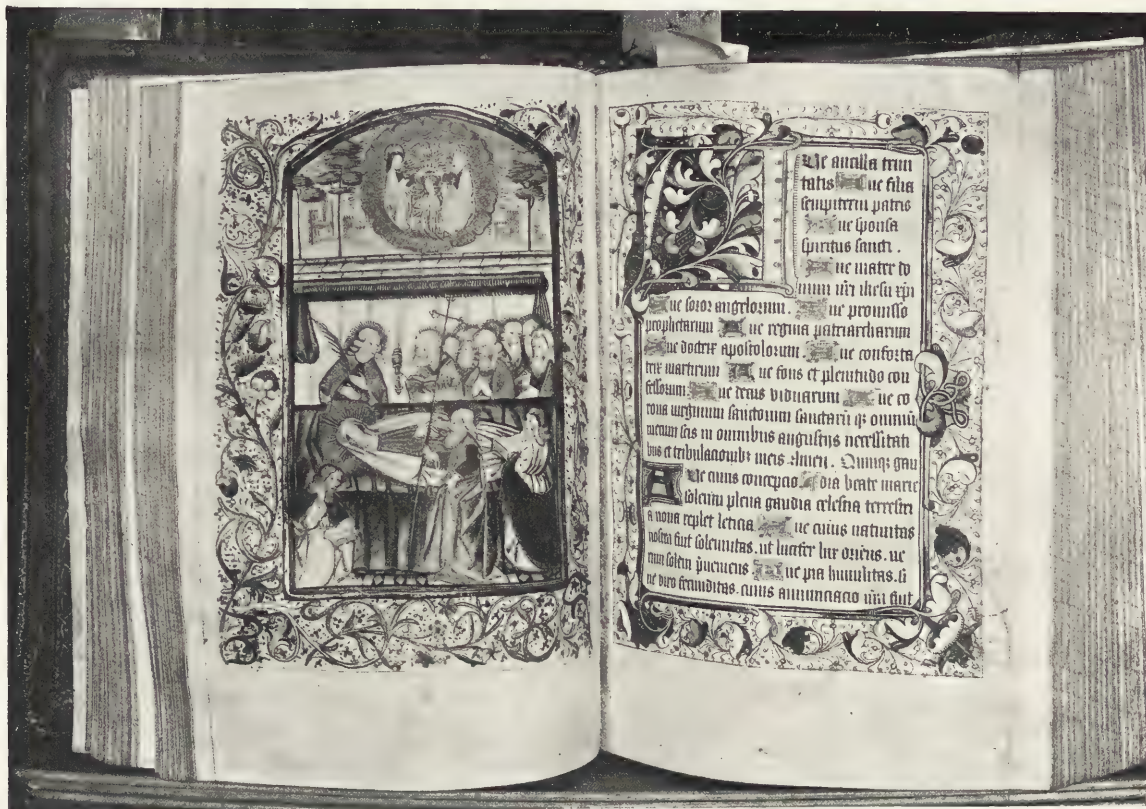 Ave ancilla trini
tatis Aue filia
sempiterni patris
Aue sponsa
spiritus sancti .
Aue mater do
mini nr̄i ihesu xp̄i
Aue soror angelorum . Aue promissio
prophetarum Aue regina patriarcharum
Aue doctrix apostolorum . Aue conforta
trix martirum Aue fons et plenitudo con
fessorum . Aue decus viduarum Aue co
rona uirginum sanctorum sanctarū qȝ omniū
mecum sis in omnibus angustijs necessitati
bus et tribulacionibȝ meis Amen . Quinqȝ gau
Aue cuius concepcio . dia beate marie
solemn plena gaudia celestia terrestri
a noua replet leticia Aue cuius natiuitas
nostra fuit solemnitas . ut lucifer lux oriens . ue
rum solem p̄ueniens Aue pia humilitas . si
ne viro fecunditas . cuius annunciacio nr̄a fuit